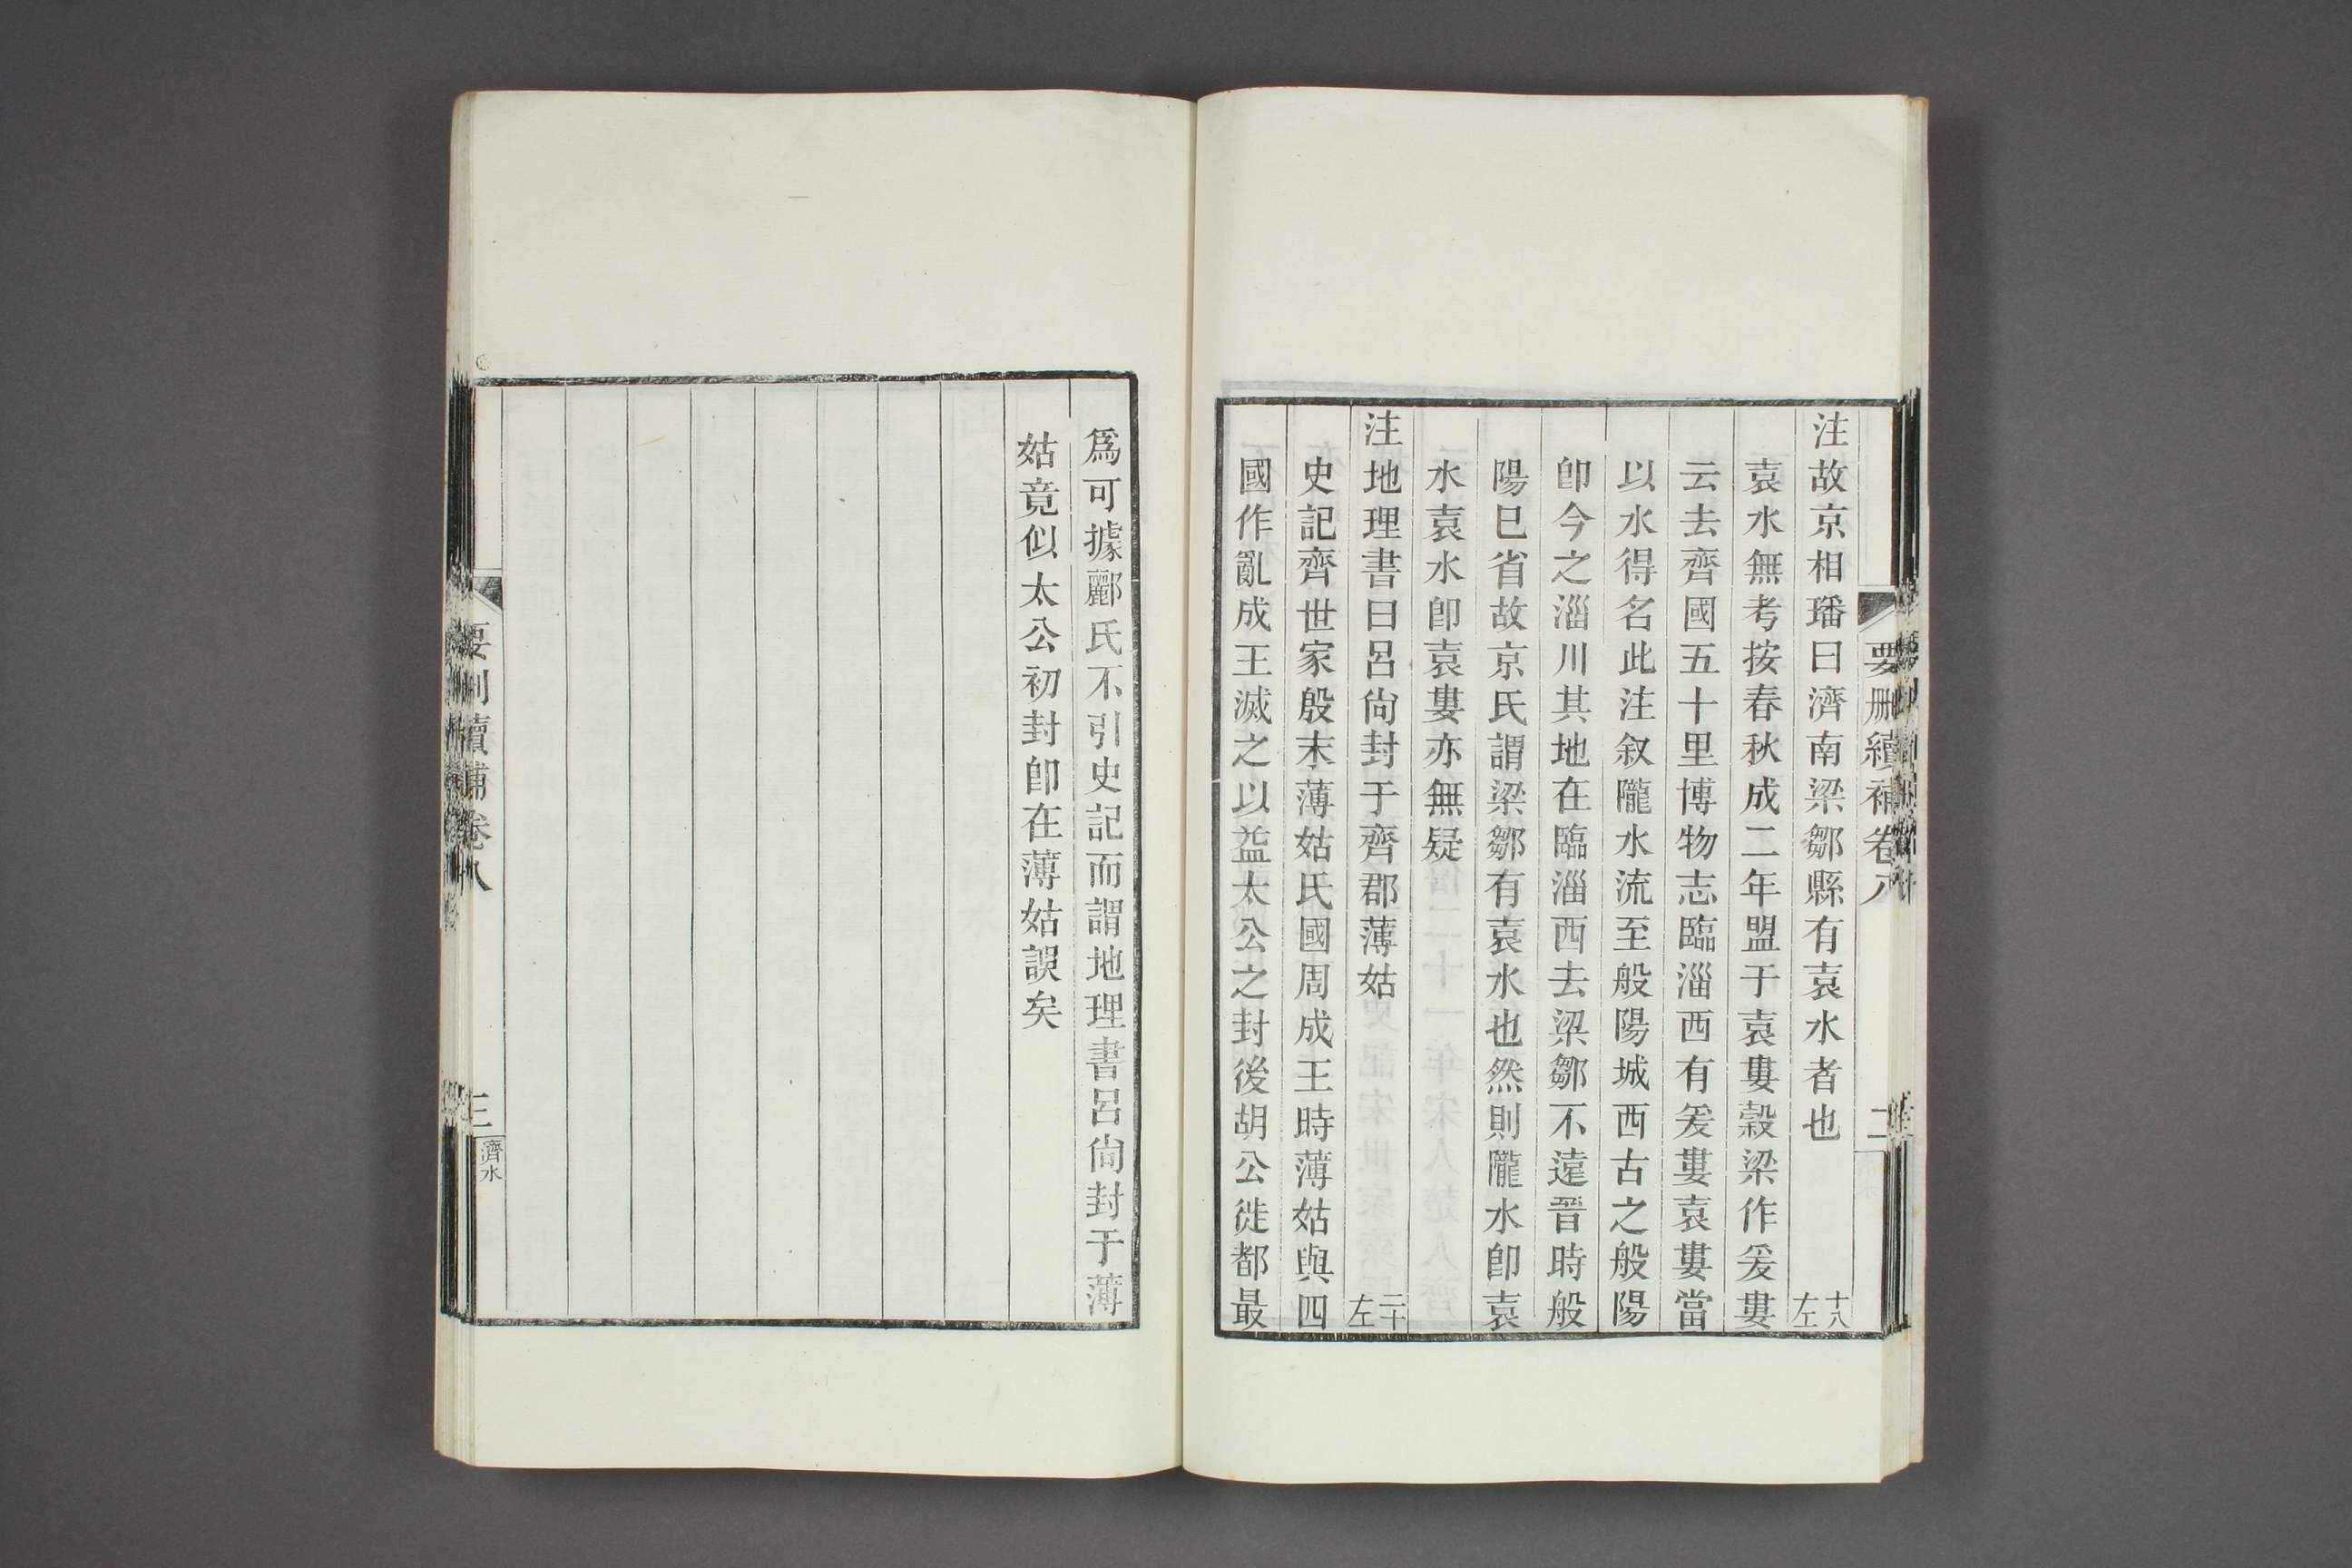 要刪續補卷八
二
注故京相璠曰濟南梁鄒縣有袁水者也 十八左
袁水無考按春秋成二年盟于袁婁穀梁作爰婁
云去齊國五十里博物志臨淄西有爰婁袁婁當
以水得名此注叙隴水流至般陽城西古之般陽
卽今之淄川其地在臨淄西去梁鄒不遠晉時般
陽巳省故京氏謂梁鄒有袁水也然則隴水卽袁
水袁水卽袁婁亦無疑
注地理書曰呂尙封于齊郡薄姑 二十左
史記齊世家殷末薄姑氏國周成王時薄姑與四
國作亂成王滅之以益太公之封後胡公徙都最
爲可據酈氏不引史記而謂地理書呂尙封于薄
姑竟似太公初封卽在薄姑誤矣
要刪續補卷八
三
濟水